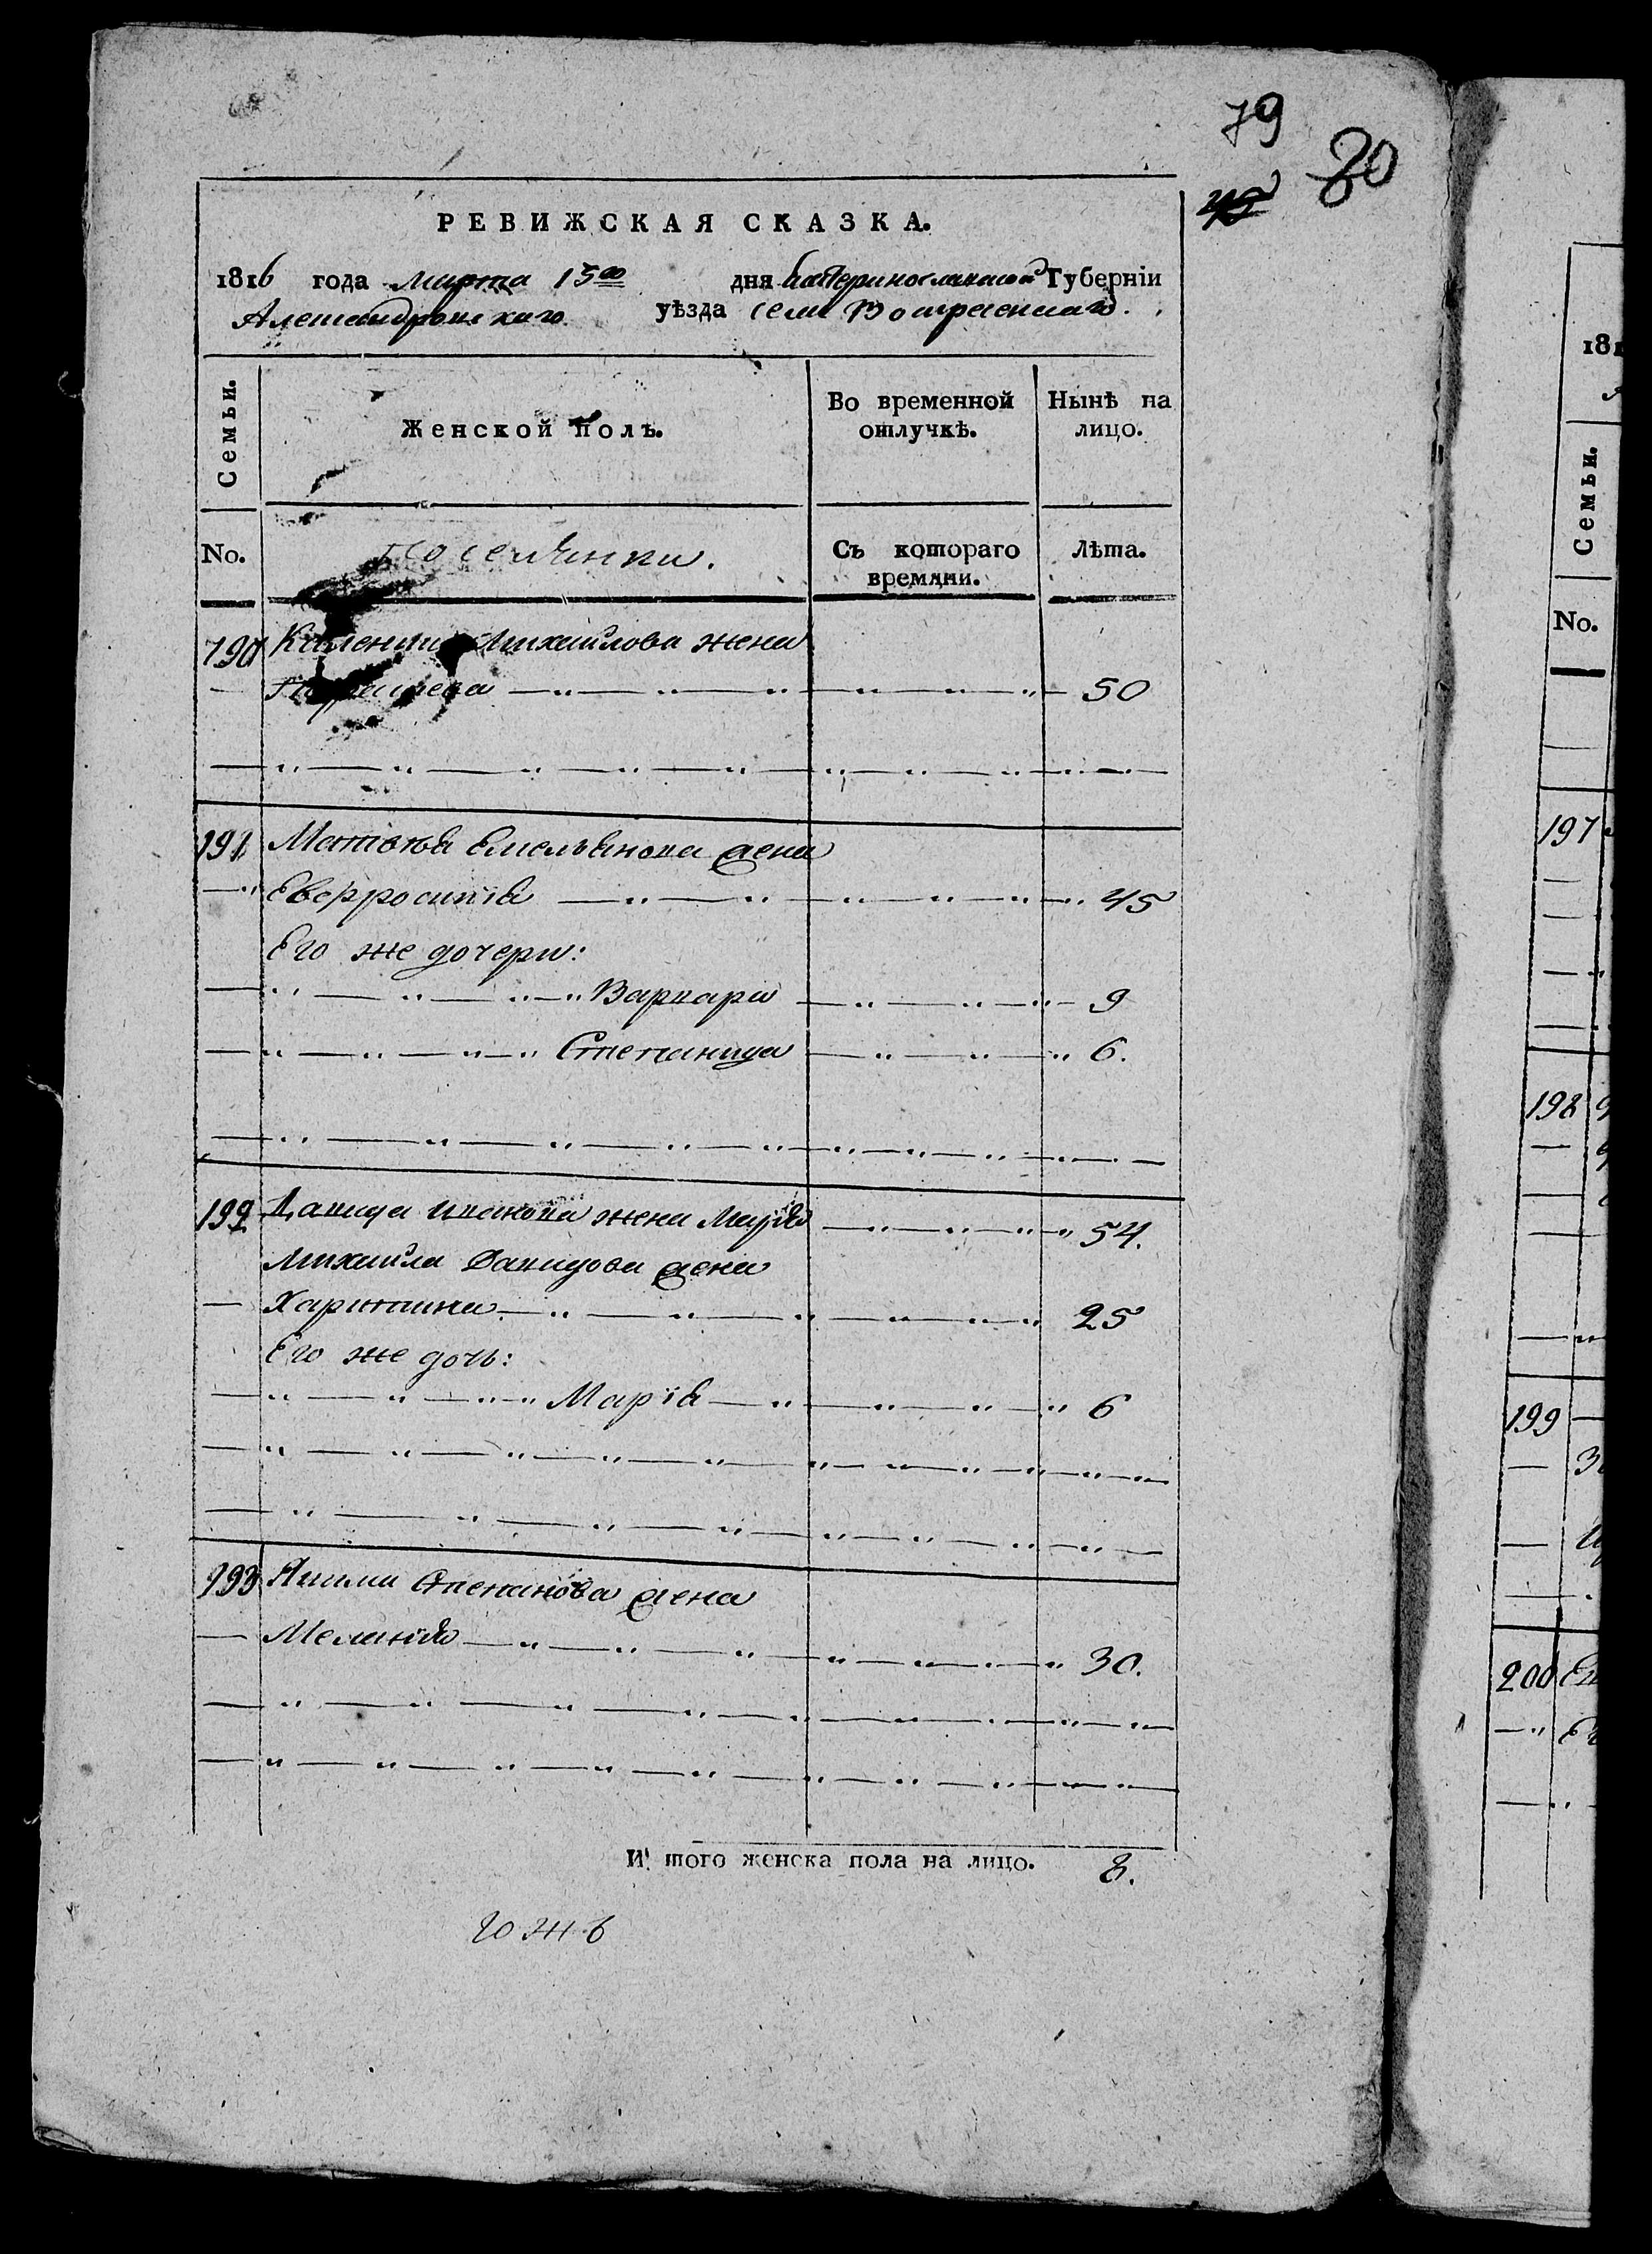 79
80
РЕВИЖСКАЯ СКАЗКА.
1816 года Марта 15го дня Екатеринославской Губерніи
Александровскаго уѣзда села Воскресенскаго.
Семьи. Женской полъ. Во временной отлучкѣ. Нынѣ на лицо.
No. Поселянки. Съ котораго времяни. Лѣта.
190 Михайлова жена
50
191 Матвѣя Емельянова жена
Евфросинія 45
Его же дочери:
Варвара 9
Степанида 6.
192 Давида Иванова жена Марья 54.
Михайла Давидова жена
Харитина 25
Его же дочь:
Марія 6
193 Степанова жена
Меланія 30.
И того женска пола на лицо. 8.
181
Семьи.
No.
197
198
199
200